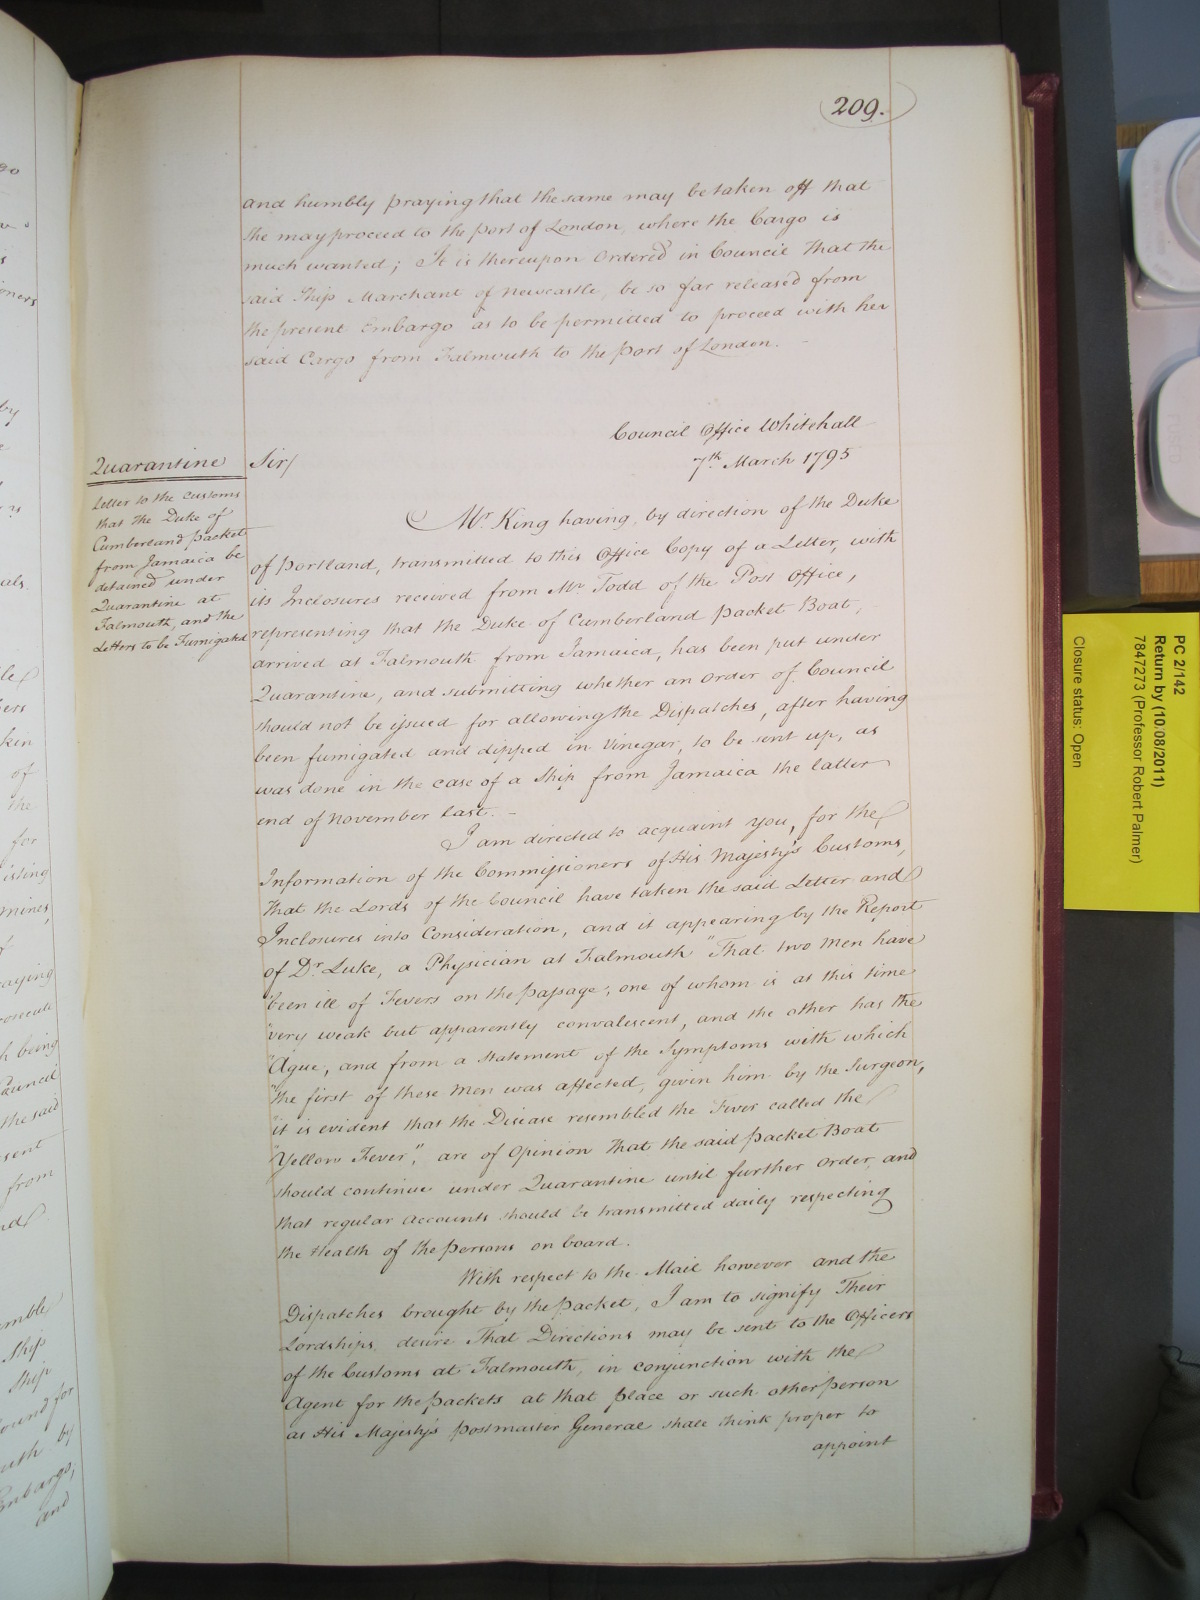 209.
and humbly praying that the same may be taken off that
She may proceed to the Port of London, where the Cargo is
much wanted; It is thereupon Ordered in Council That the
said Ship Marchant of Newcastle, be so far released from
the present Embargo as to be permitted to proceed with her
said Cargo from Falmouth to the Port of London. -
Council Office Whitehall
7th March 1795
Quarantine
Letter to the Customs
that the Duke of
Cumberland Packet
from Jamaica be
detained under
Quarantine at
Falmouth, and the
Letters to be Fumigated
Sir/
Mr King having, by direction of the Duke
of Portland, transmitted to this Office Copy of a Letter, with
its Inclosures received from Mr Todd of the Post Office,
representing that the Duke of Cumberland Packet Boat,
arrived at Falmouth from Jamaica, has been put under
Quarantine, and submitting whether an Order of Council
should not be issued for allowing the Dispatches, after having
been fumigated and dipped in Vinegar, to be sent up, as
was done in the case of a Ship from Jamaica the latter
end of November last. -
I am directed to acquaint you, for the
Information of the Commissioners of His Majesty's Customs,
That the Lords of the Council have taken the said Letter and
Inclosures into Consideration, and it appearing by the Report
of Dr Luke, a Physician at Falmouth "That two Men have
"been ill of Fevers on the passage; one of whom is at this time
"very weak but apparently convalescent, and the other has the
"Ague, and from a Statement of the Symptoms with which
"the first of these Men was affected, given him by the Surgeon,
"it is evident that the Disease resembled the Fever called the
"Yellow Fever", are of Opinion That the said Packet Boat
should continue under Quarantine until further Order, and
that regular Accounts should be transmitted daily respecting
the Health of the Persons on board.
With respect to the Mail however and the
Dispatches brought by the Packet, I am to signify Their
Lordships desire That Directions may be sent to the Officers
of the Customs at Falmouth, in conjunction with the
Agent for the Packets at that place or such other person
as His Majesty's Postmaster General shall think proper to
appoint
PC 2/142
Return by (10/08/2011)
7847273 (Professor Robert Palmer)
Closure status: Open
by
als.
kin
of
the
for
mines,
h being
the said
from
Ship
Ship
by
and